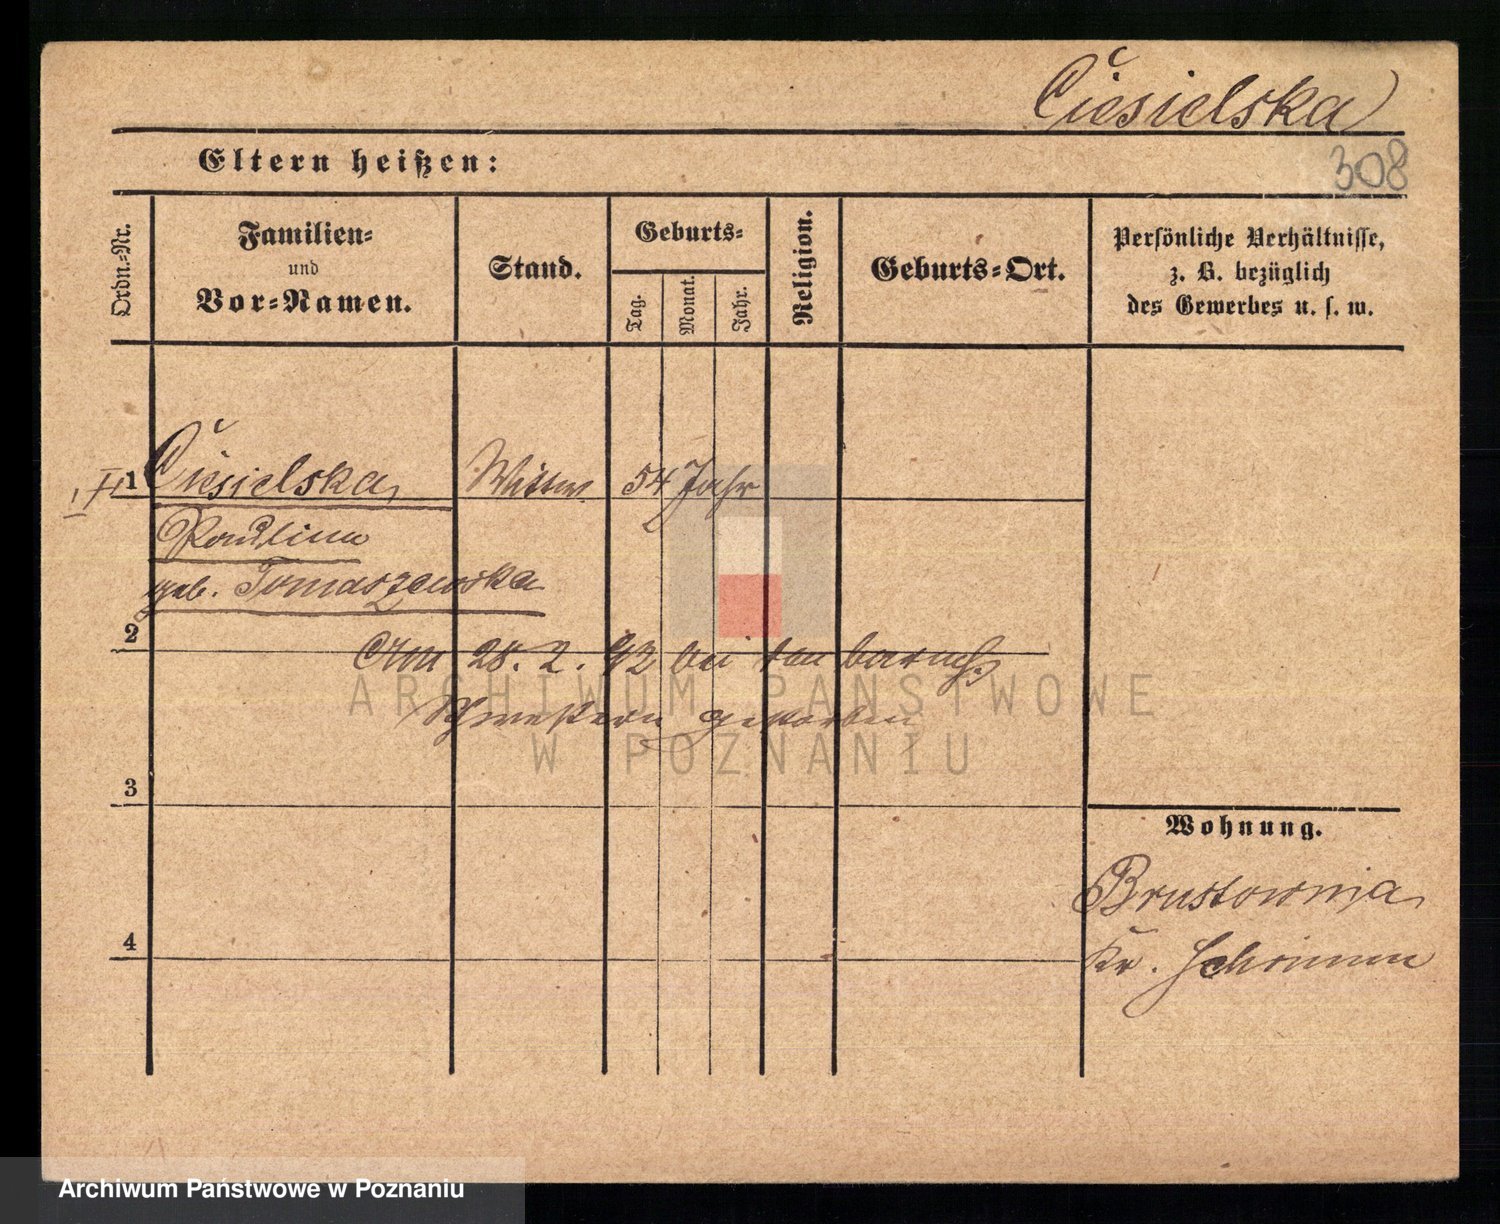 Ciesielska
Eltern heißen:
308
Ordn.-Nr.
Familien-
und
Vor-Namen.
Stand.
Geburts-
Tag.
Monat.
Jahr.
Religion.
Geburts-Ort.
Persönliche Verhältnisse,
z. B. bezüglich
des Gewerbes u. s. w.
1
Ciesielska,
Wittwe
54 Jahr
Paulina
geb. Tomaszewska
2
Am 28. 2. 92 bei den barmh.
Schwestern gestorben
ARCHIWUM PAŃSTWOWE
W POZNANIU
3
Wohnung.
Brustownia,
4
Kr. Schrimm
Archiwum Państwowe w Poznaniu